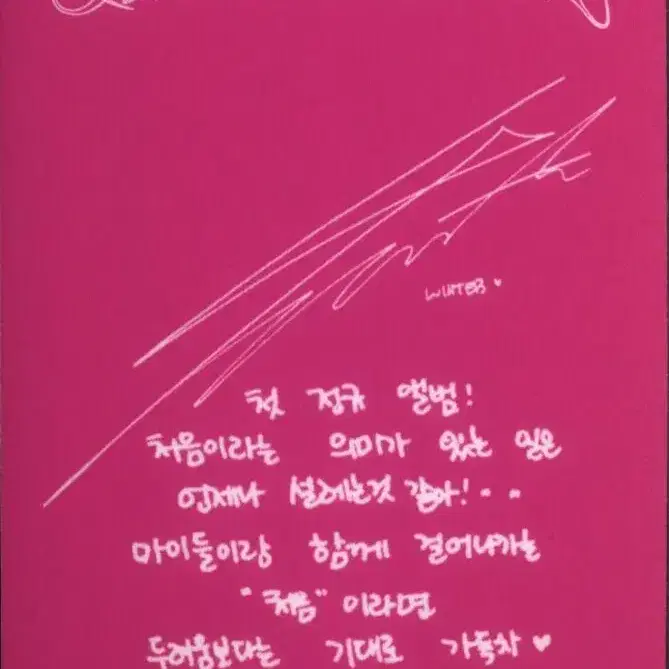 WINTER ♥
첫 정규 앨범!
처음이라는 의미가 있는 일은
언제나 설레는것 같아!..
마이들이랑 함께 걸어나가는
"처음" 이라면
두려움보다는 기대로 가득차 ♥